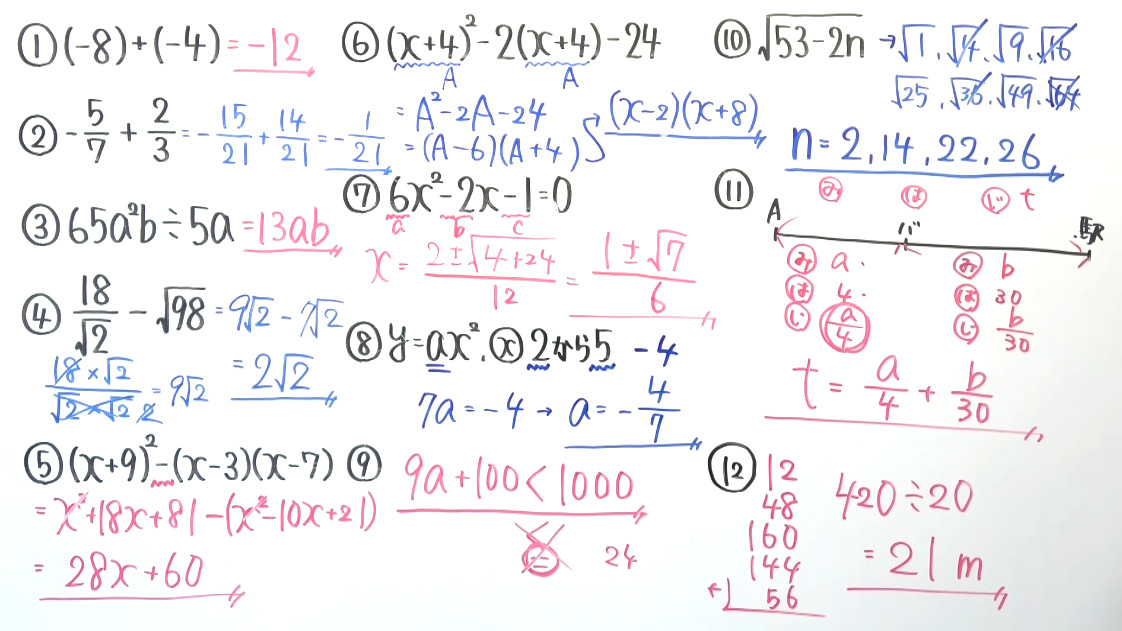 ① (-8)+(-4) = -12
② -5/7 + 2/3 = -15/21 + 14/21 = -1/21
③ 65a²b÷5a = 13ab
④ 18/√2 - √98 = 9√2 - 7√2
= 2√2
18×√2/√2×√2 2 = 9√2
⑤ (x+9)²-(x-3)(x-7)
= x²+18x+81-(x²-10x+21)
= 28x+60
⑥ (x+4)²-2(x+4)-24
A A
= A²-2A-24
= (A-6)(A+4)
(x-2)(x+8)
⑦ 6x²-2x-1=0
a b c
x = 2±√4+24/12 = 1±√7/6
⑧ y=ax². ⓧ 2から5 -4
7a=-4 → a=-4/7
⑨ 9a+100<1000
24
⑩ √53-2n → √1.√4.√9.√16
√25.√36.√49.√64
n=2,14,22,26
⑪ み は じ t
A バ 駅
み a み b
は 4 は 30
じ a/4 じ b/30
t = a/4 + b/30
⑫ 12
48
160
144
56
420÷20
= 21 m